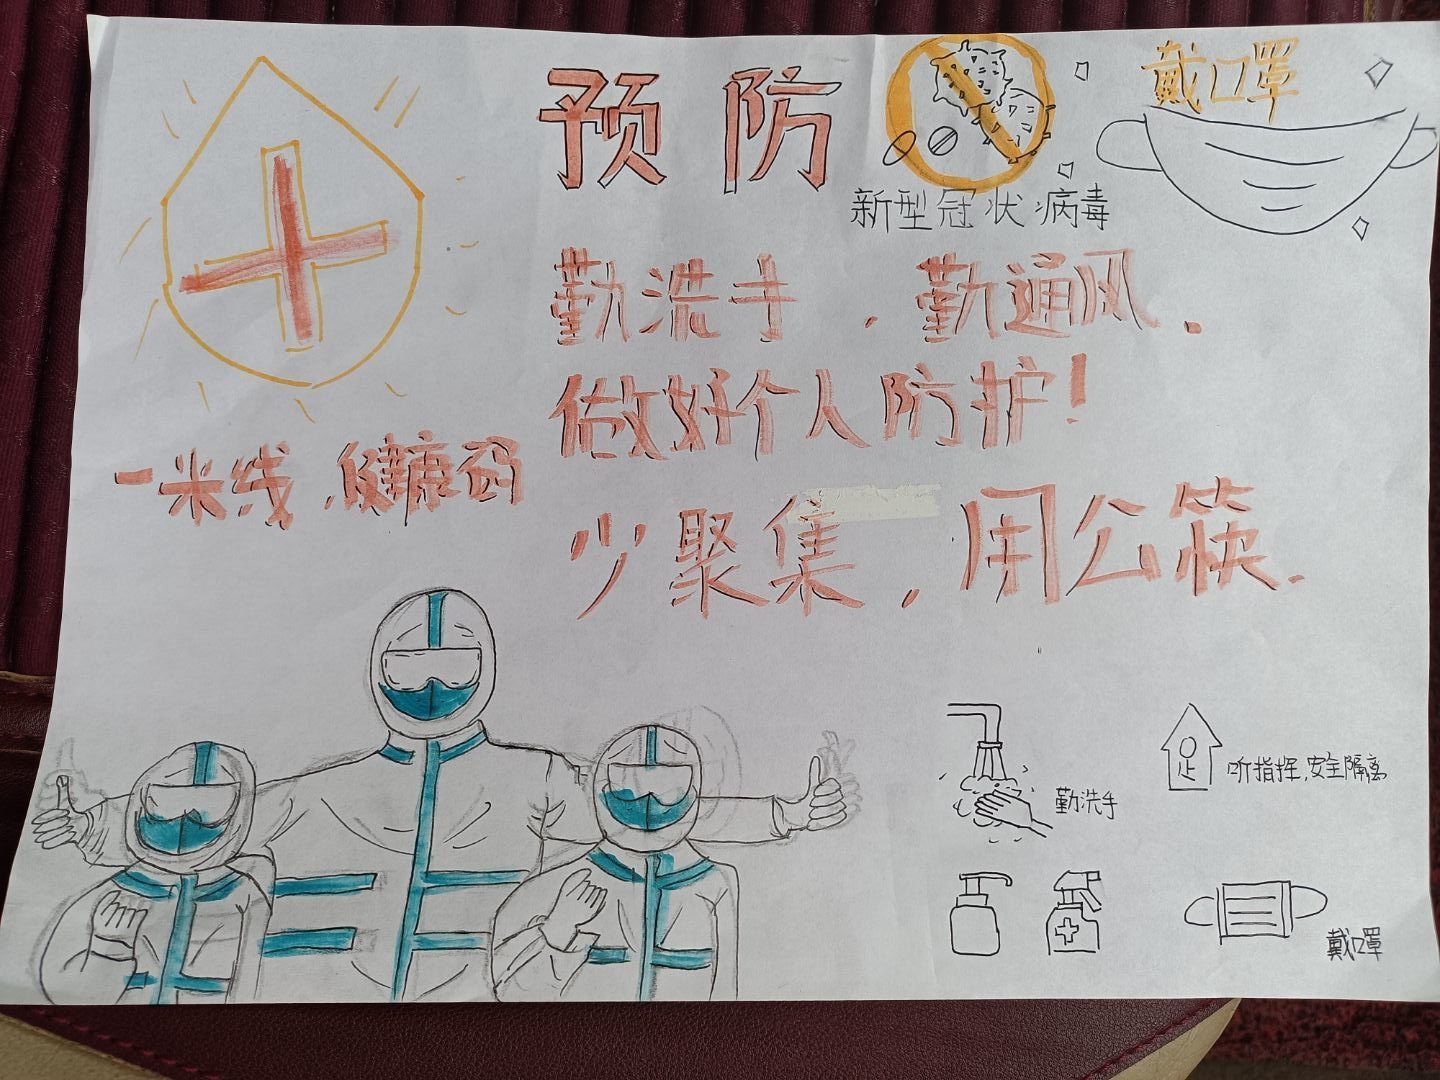 预防
新型冠状病毒
戴口罩
勤洗手，勤通风，
做好个人防护！
一米线，健康码
少聚集，用公筷.
勤洗手
听指挥，安全隔离
戴口罩